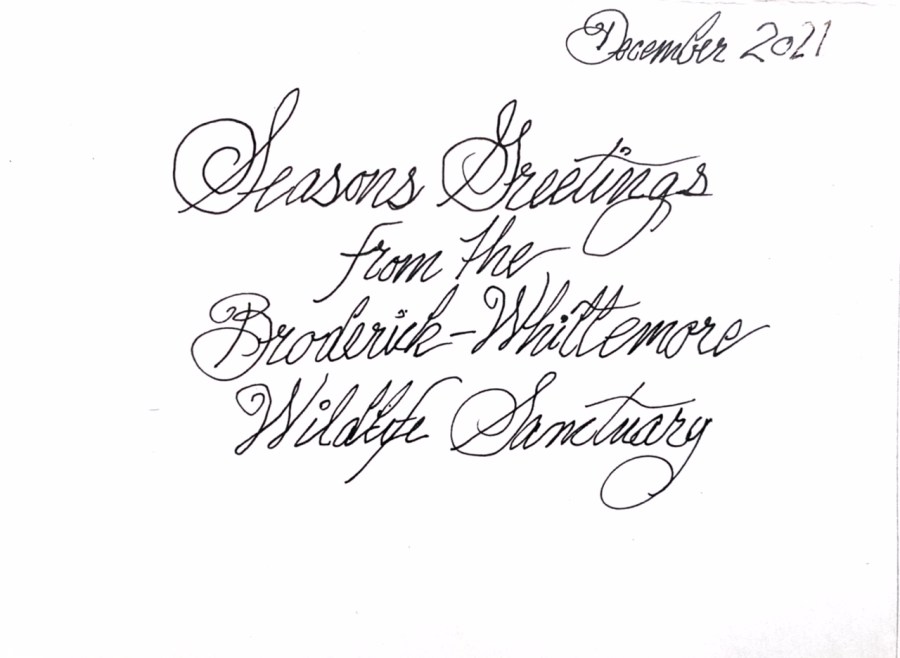 December 2021
Seasons Greetings
from the
Broderick-Whittemore
Wildlife Sanctuary